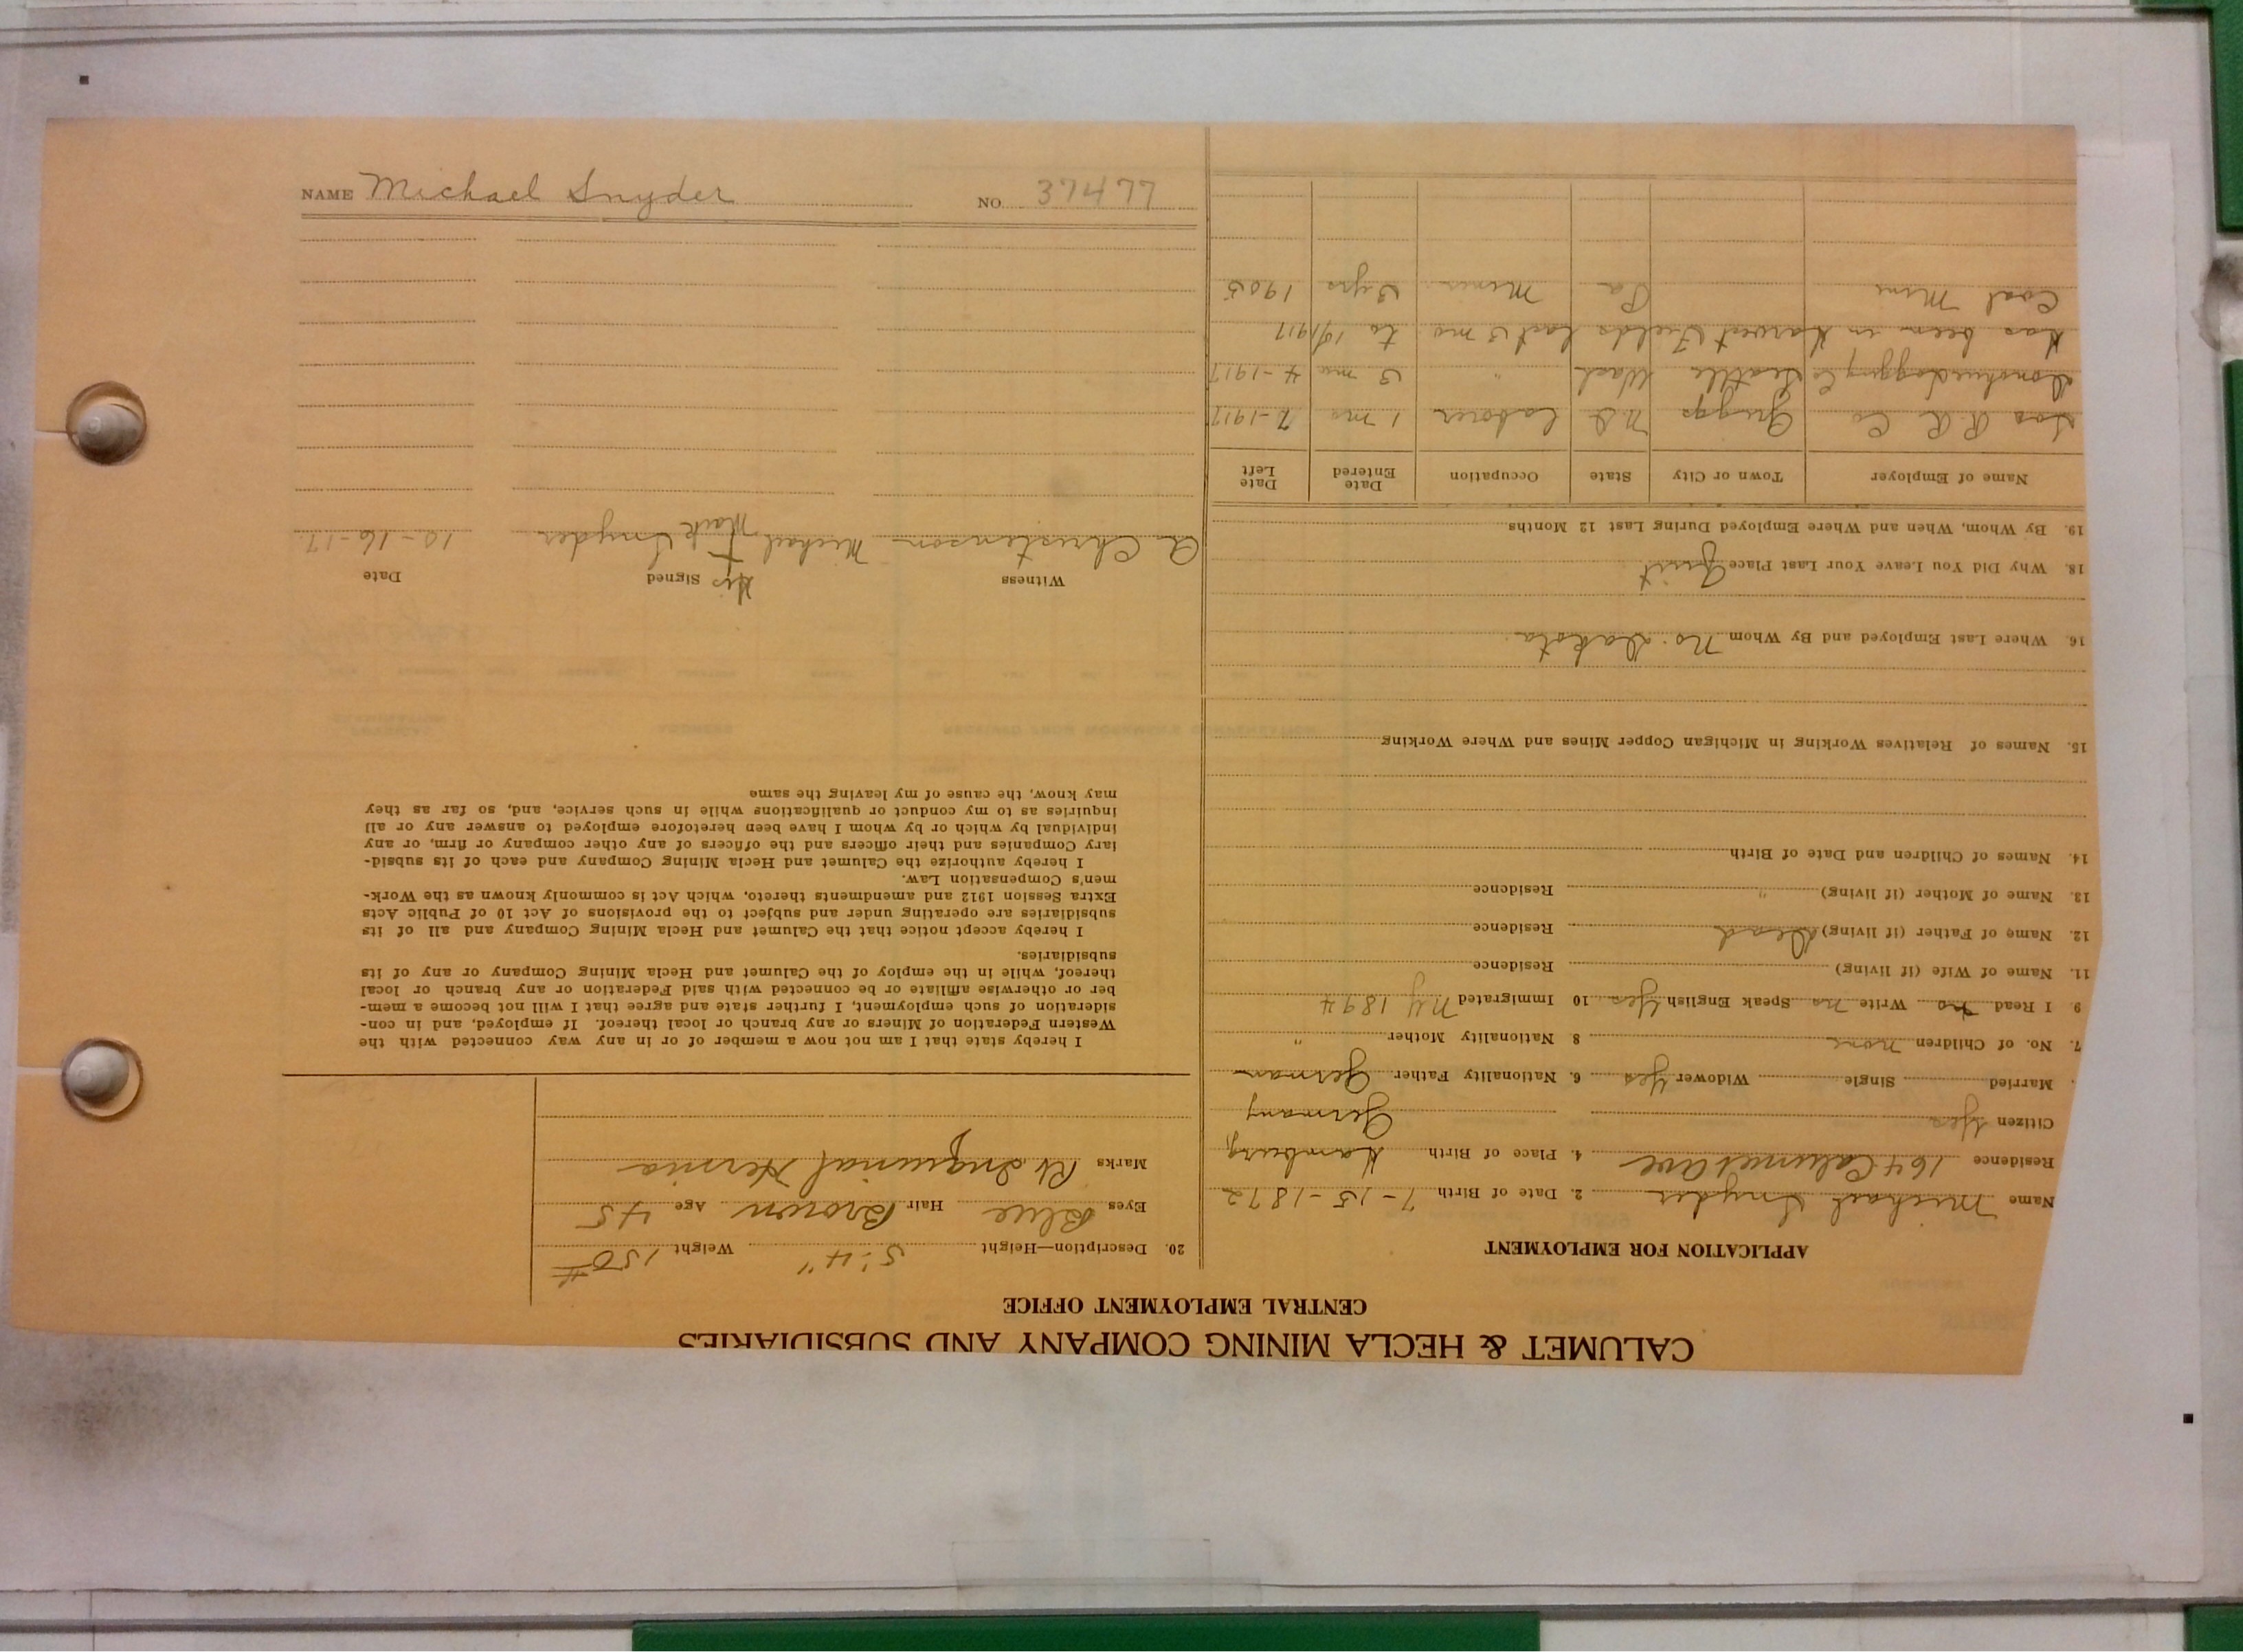 CALUMET & HECLA MINING COMPANY AND SUBSIDIARIES
CENTRAL EMPLOYMENT OFFICE
APPLICATION FOR EMPLOYMENT
Name Michael Snyder 2. Date of Birth 7-15-1872
Residence 164 Calumet Ave 4. Place of Birth. Hamburg,
Citizen Yes Germany
Married Single Widower Yes 6. Nationality Father German
7. No. of Children none 8 Nationality Mother "
9 I Read no Write no Speak English Yes 10 Immigrated NY 1894
11. Name of Wife (if living) Residence
12. Name of Father (if living) Dead Residence
13. Name of Mother (if living) " Residence
14. Names of Children and Date of Birth
15. Names of Relatives Working in Michigan Copper Mines and Where Working
16. Where Last Employed and By Whom No. Dakota
18. Why Did You Leave Your Last Place Quit
19. By Whom, When and Where Employed During Last 12 Months
Name of Employer Town or City State Occupation Date Entered Date Left
Soo R R Co Griggs N.D. Laborer 1 mo 7-1917
Donohue Logging Co Seattle Wash " 3 mo 4-1917
Has been in Harvest Fields last 3 mo to 10/1917
Coal Mine Pa Miner 3 yrs 1905
20. Description—Height 5'.4" Weight 150#
Eyes Blue Hair Brown Age 45
Marks Rt Inguinal Hernia
I hereby state that I am not now a member of or in any way connected with the
Western Federation of Miners or any branch or local thereof. If employed, and in con-
sideration of such employment, I further state and agree that I will not become a mem-
ber or otherwise affiliate or be connected with said Federation or any branch or local
thereof, while in the employ of the Calumet and Hecla Mining Company or any of its
subsidiaries.
I hereby accept notice that the Calumet and Hecla Mining Company and all of its
subsidiaries are operating under and subject to the provisions of Act 10 of Public Acts
Extra Session 1912 and amendments thereto, which Act is commonly known as the Work-
men's Compensation Law.
I hereby authorize the Calumet and Hecla Mining Company and each of its subsid-
iary Companies and their officers and the officers of any other company or firm, or any
individual by which or by whom I have been heretofore employed to answer any or all
inquiries as to my conduct or qualifications while in such service, and, so far as they
may know, the cause of my leaving the same
Witness His Signed Date
A Christenson Michael + Snyder 10-16-17
Mark
NAME Michael Snyder NO. 37477